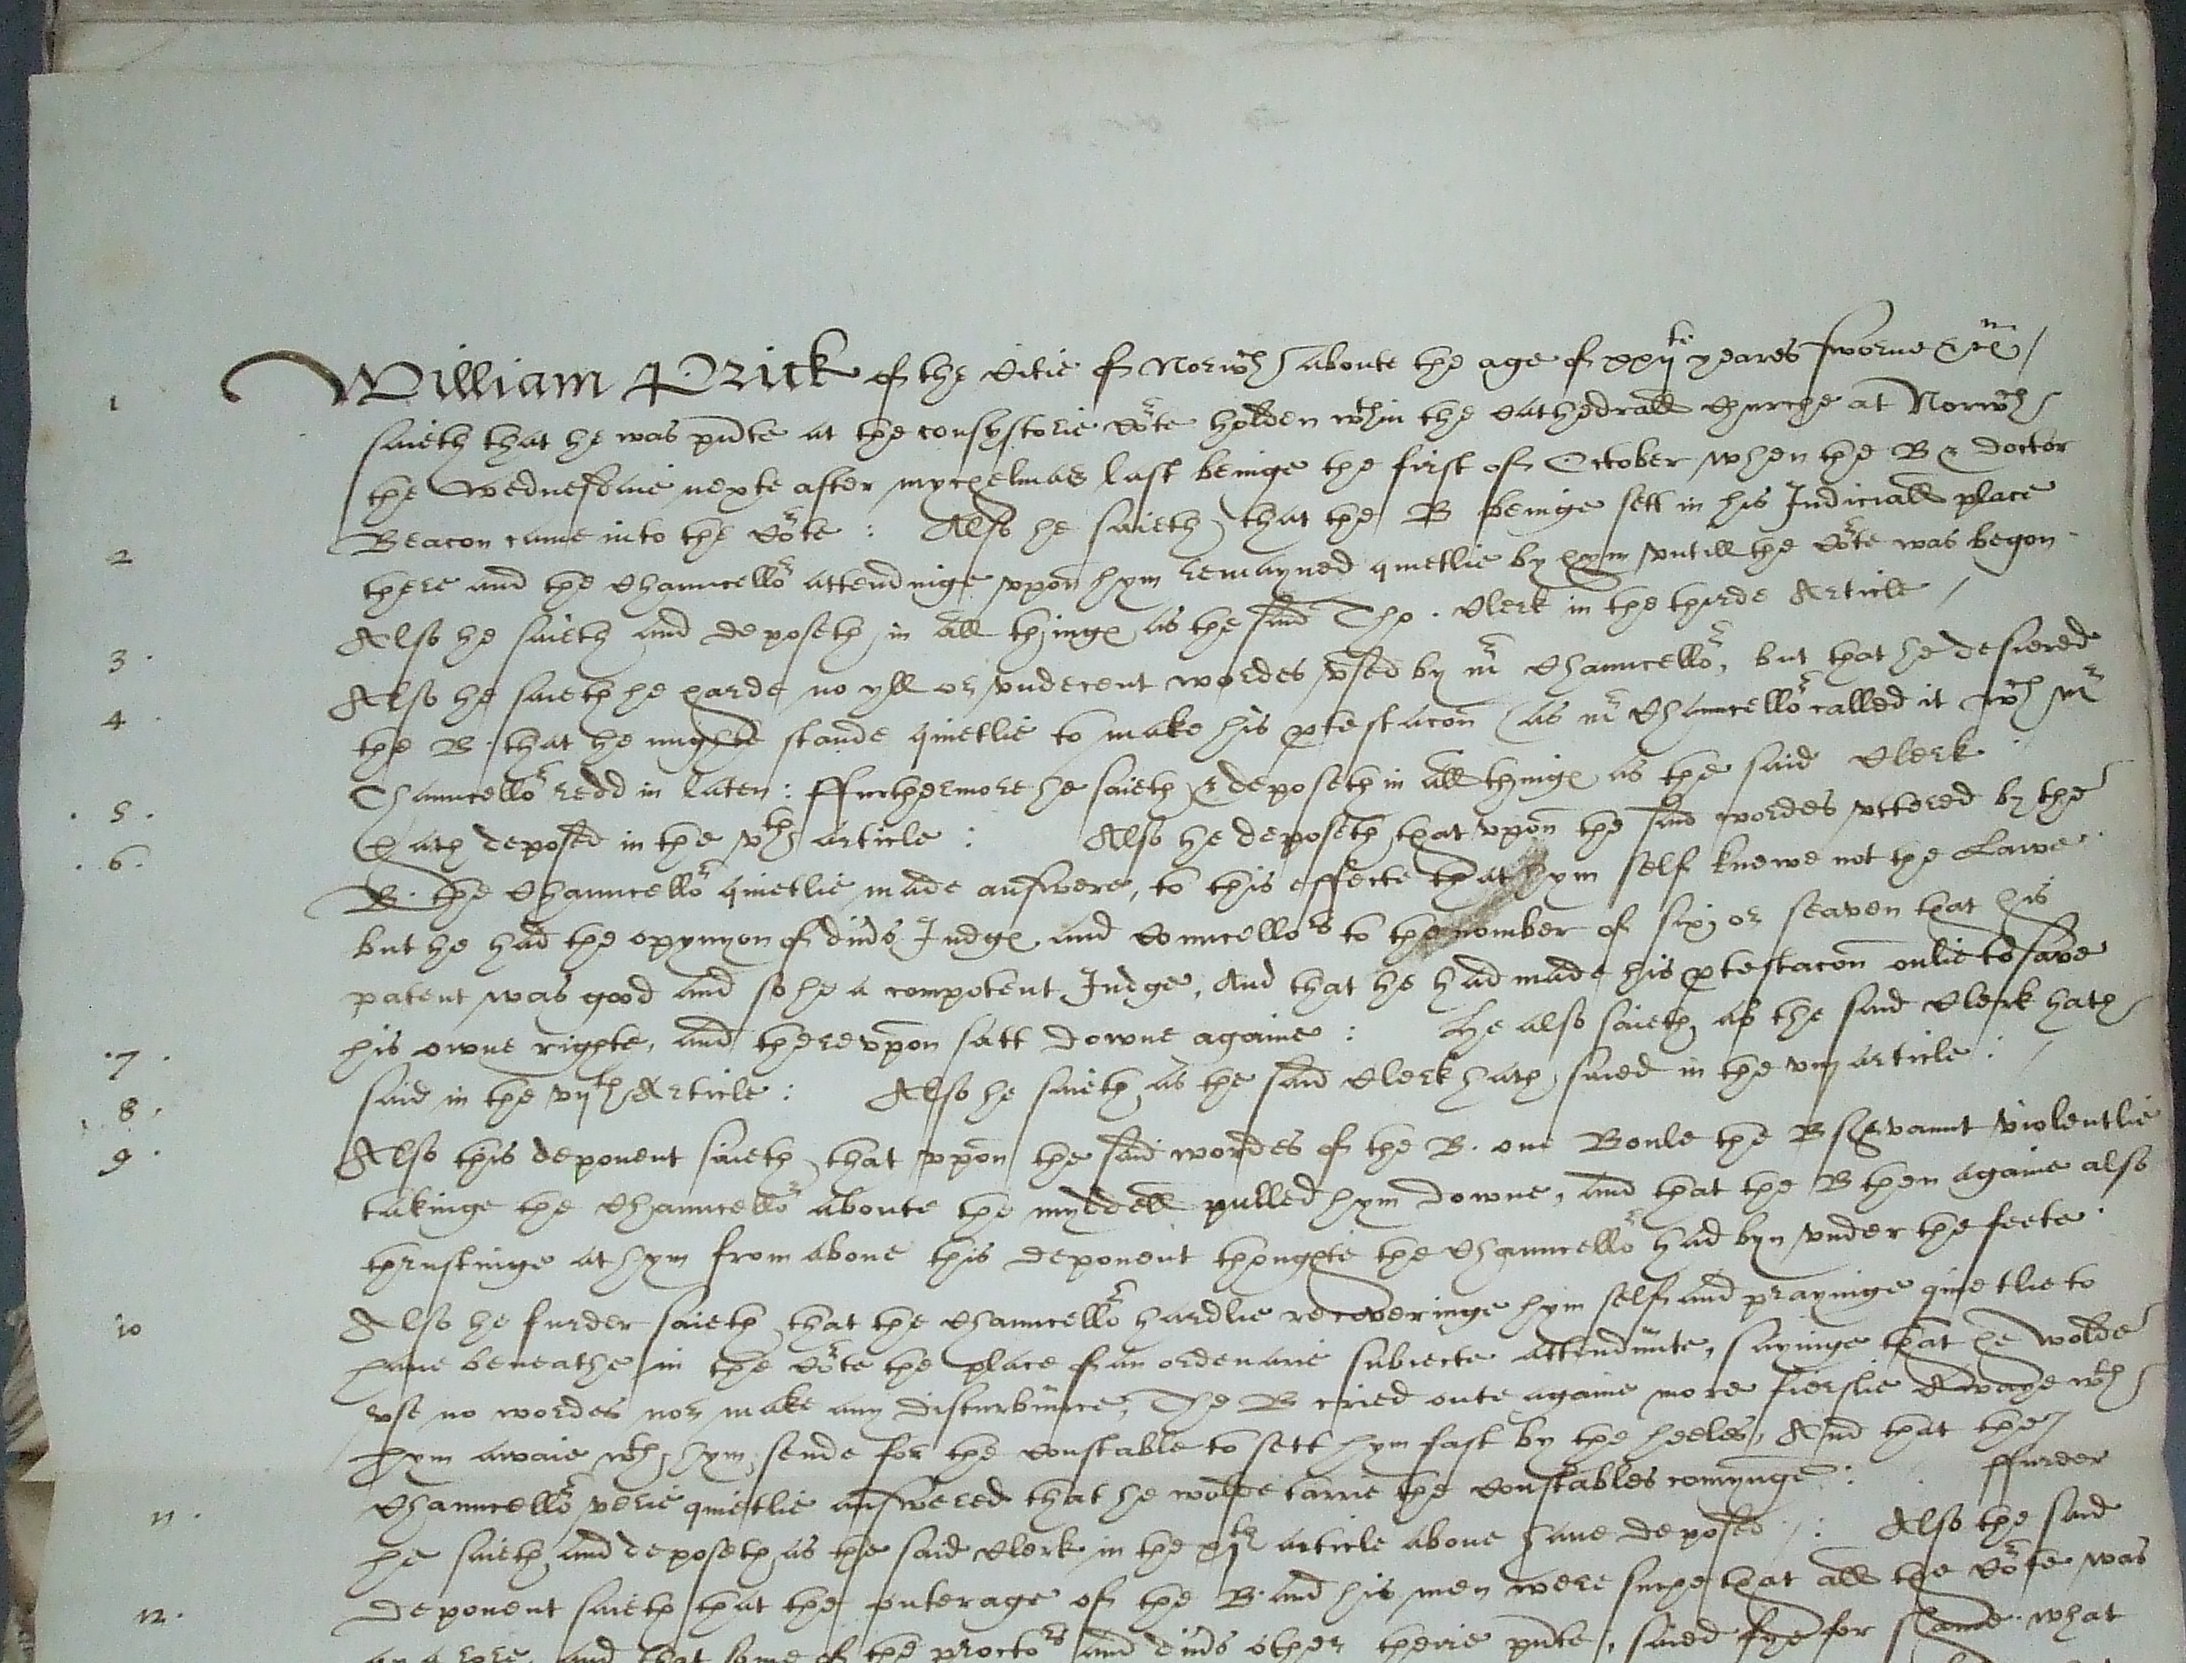 1 William Prick of the Citie of Norwch aboute the age of xxijte yeares sworne &
saieth that he was pnte at the consystorie Corte holden wthin the Cathedrall Churche at Norwch
the Wednesdaie nexte after mychelmas last beinge the first of October when the B & doctor
2 Beacon came into the Corte : Also he saieth that the B beinge sett in his Judiciall place
there and the Chauncellor attendinge vpon hym remayned quietlie by hym vntill the Corte was begon
3 . Also he saieth and deposeth in all thinges as the said Tho . Clerk in the thirde Article /
4 . Also he saieth he harde no yll or vndecent wordes vsed by mr Chauncellor, but that he desiered
the B. that he mighte stande quietlie to make his ptestacon (as mr Chauncellor called it wch mr
. 5 . Chauncellor redd in laten : ffurthermore he saieth & deposeth in all thinges as the said Clerk
. 6 . hath deposed in the vth article : Also he deposeth that vpon the said wordes vttered by the
B. the Chauncellor quietlie made answere, to this effecte that hym self knewe not the Lawe
but he had the opynyon of diuers Judges and Councellors to the nomber of six or seaven that his
patent was good and so he a competent Judge, And that he had made his ptestacon onlie to save
. 7 . his owne righte, and therevpon satt downe againe : He also saieth as the said Clerk hath
8 . said in the vijth Article : Also he saieth as the said Clerk hath saied in the viij article : /
9 . Also this deponent saieth that vpon the said wordes of the B. one Boule the B servaunt violentlie
takinge the Chauncellor aboute the myddell pulled hym downe, and that the B then againe also
thrustinge at hym from aboue this deponent thoughte the Chauncellor had byn vnder the feete .
10 Also he furder saieth that the Chauncellor hardlie recoveringe hym self and prayinge quietlie to
haue beneathe in the Corte the place of an ordenarie subiecte attendante, sayinge that he wolde
vse no wordes nor make any disturbance, The B cried oute againe more fierslie Awaye wth
hym awaie wth hym, sende for the constable to sett hym fast by the heeles, And that the
11 . Chauncellor verie quietlie answered that he wolde tarrie the constables comynge : . ffurder
he saieth and deposeth as the said Clerk in the article aboue haue deposed : Also the said
12 . deponent saieth that the outerage of the B. and his men were suche that all the Corte was
and that some of the proctors and diuers other there pnte, saied fye for shame what